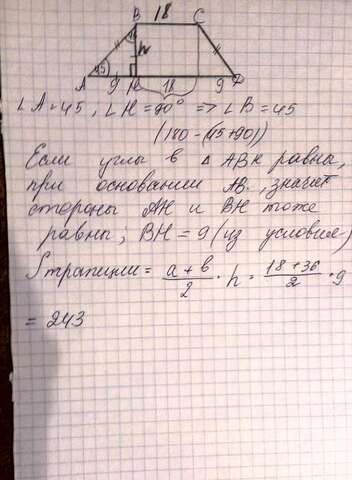 18
B C
45 h
A 45 9 H 18 9 D
∠A=45, ∠H=90° => ∠B=45
(180-(45+90))
Если углы в △ ABH равны,
при основании AB, значит
стороны AH и BH тоже
равны; BH=9 (из условия)
Sтрапеции = a+b/2 · h = 18+36/2 · 9
= 243